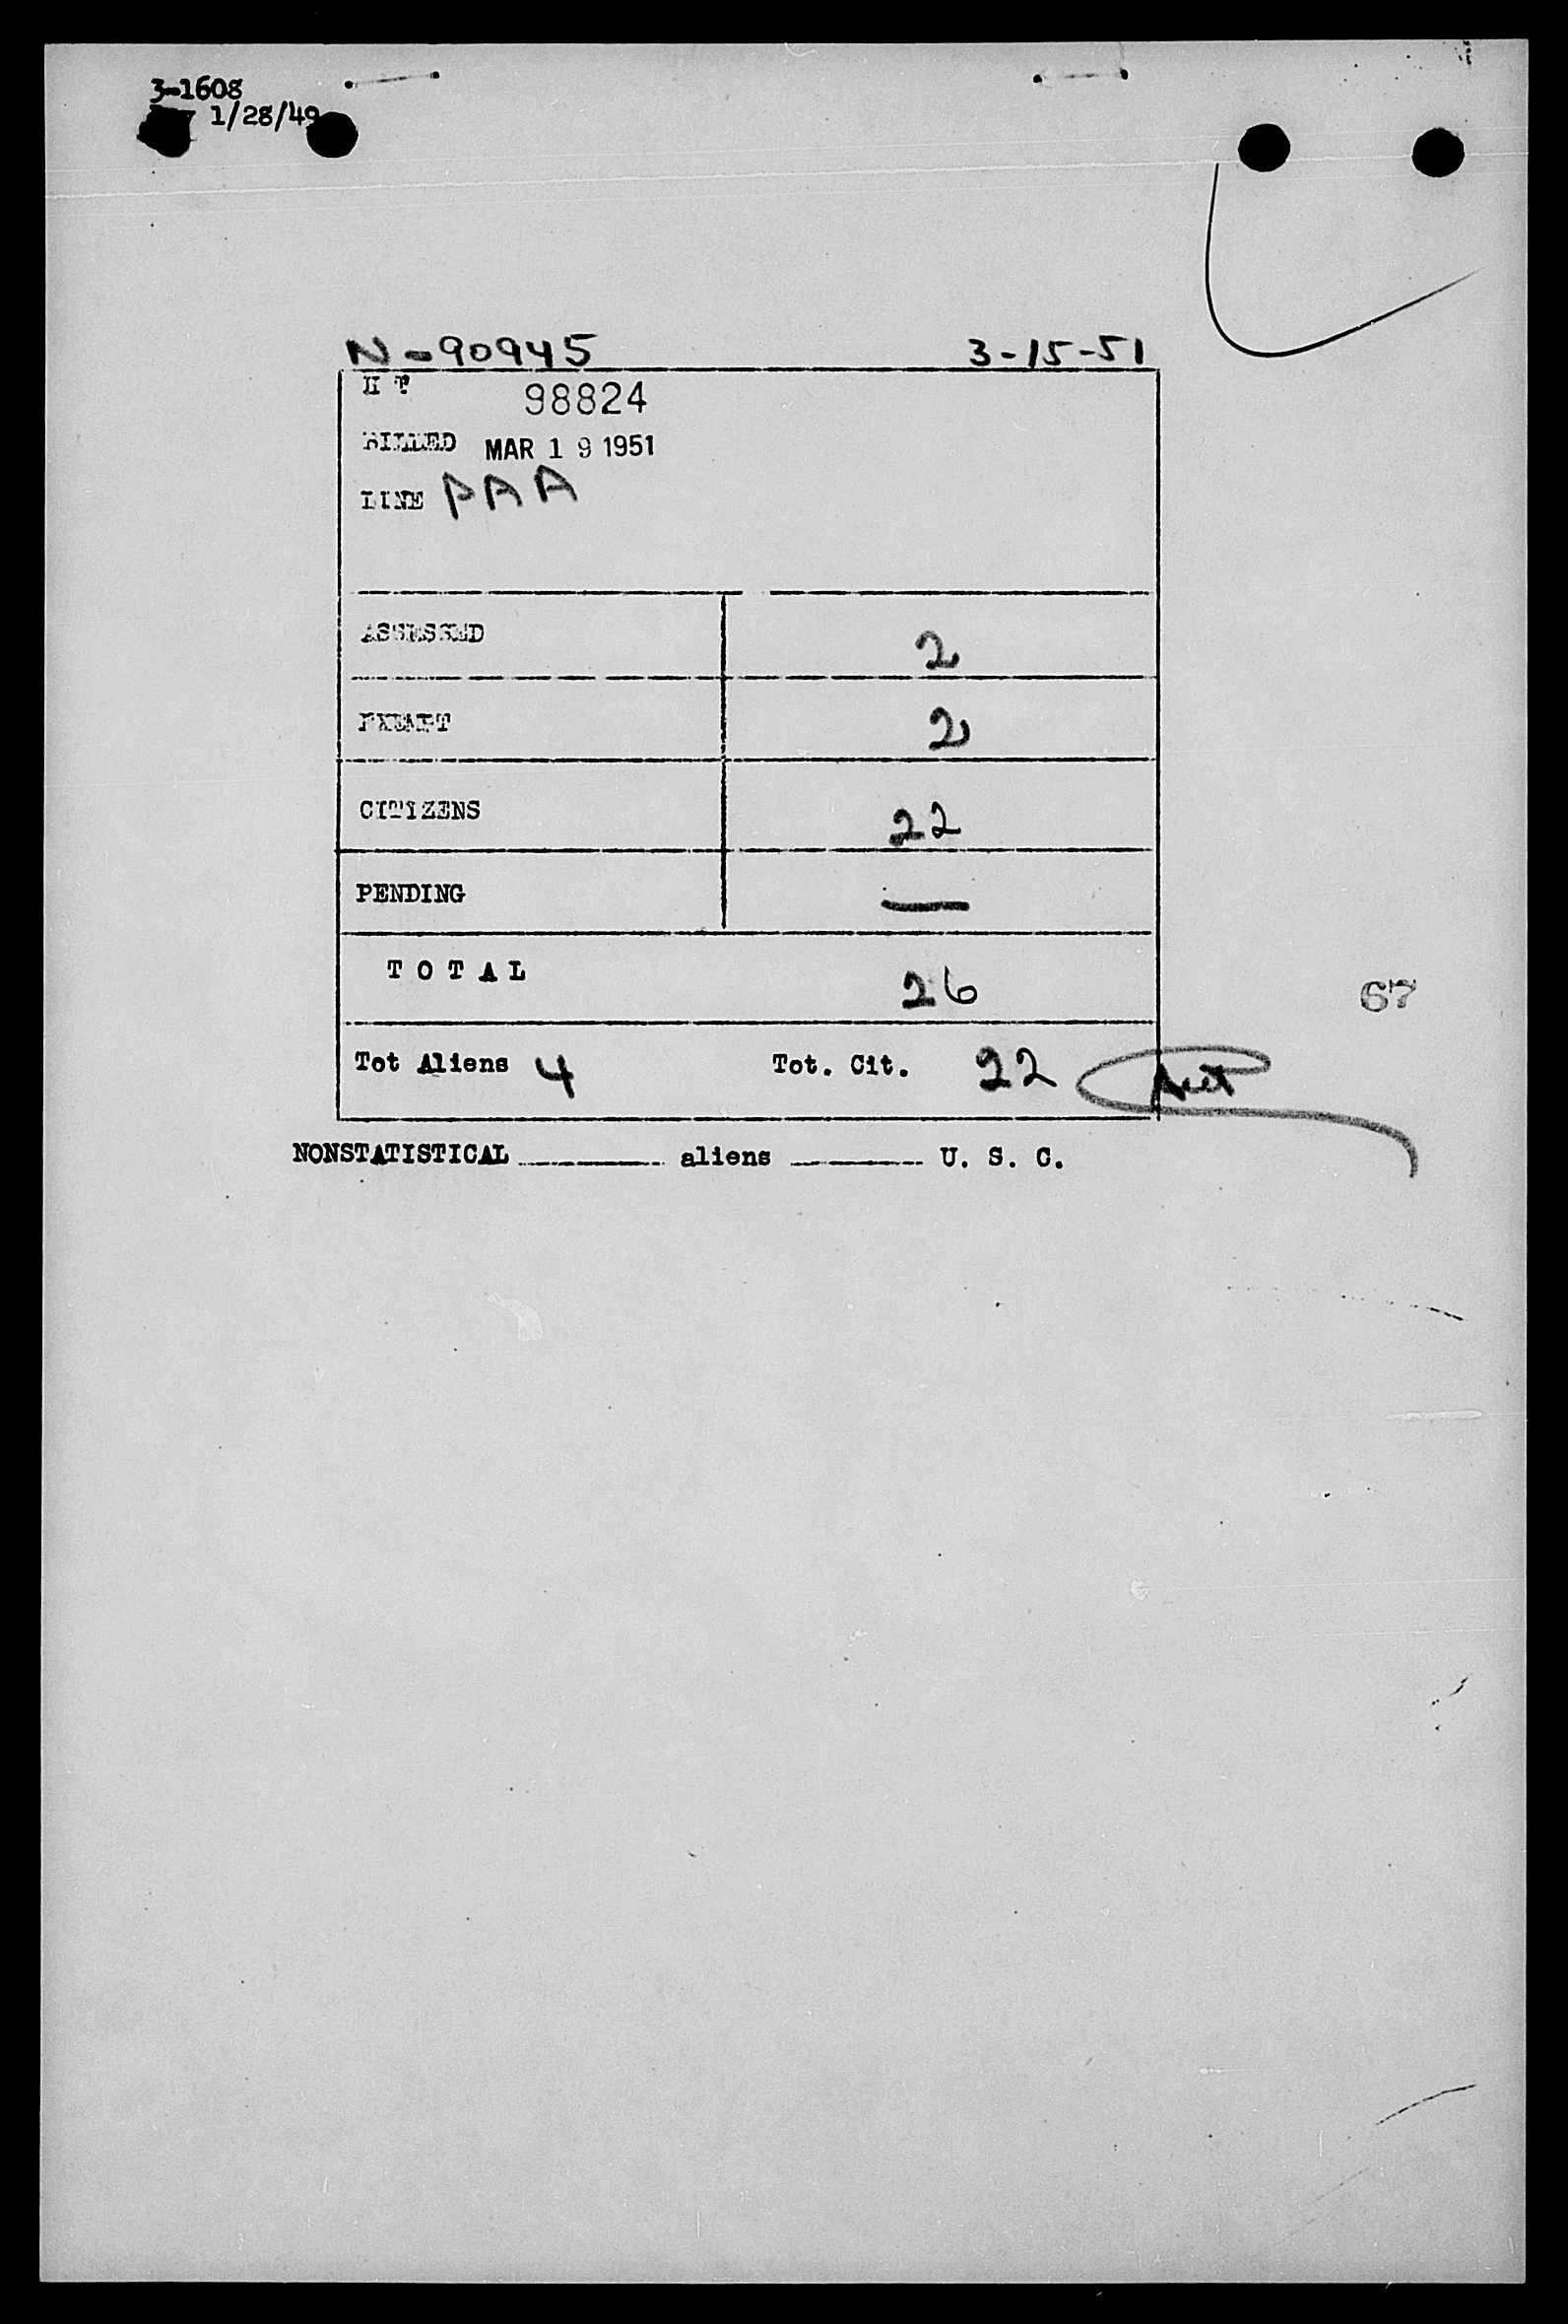 3-1608
1/28/49
N-90945 3-15-51
H T 98824
BILLED MAR 19 1951
LINE PAA
ASSESSED 2
EXEMPT 2
CITIZENS 22
PENDING —
TOTAL 26
67
Tot Aliens 4 Tot. Cit. 22
NONSTATISTICAL ________ aliens ________ U. S. C.